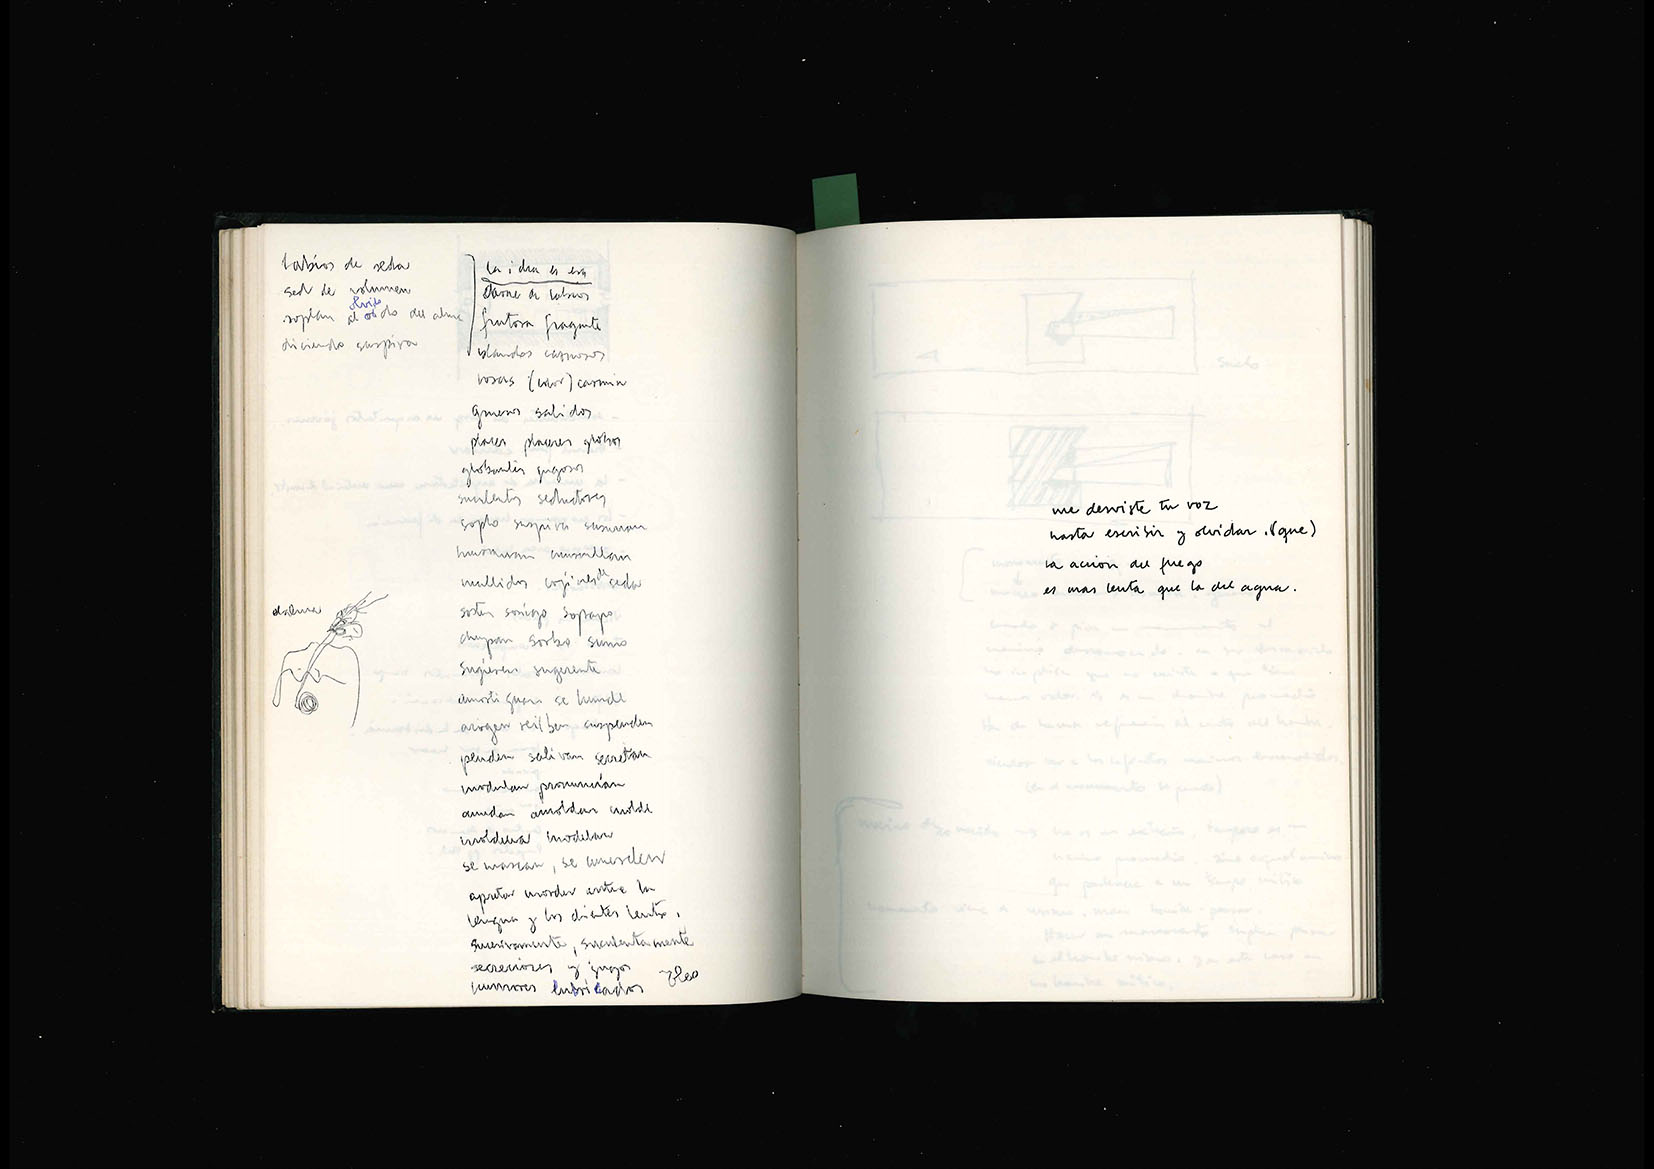 labios de seda
sed de volumen
soplan al oído del alma
olvido
diciendo suspiro
la idea es esa
carne de labios
frutosa fragante
blandos carnosos
rosas (color) carmín
gruesos salidos
places placeres globos
globantes jugosos
suculentos seductores
soplo suspiros susurran
murmuran
mullidos cojines de seda
sosten sosiego sopapo
chupan sorbo sumo
sugieren sugerente
amortiguan se hunde
acogen reciben suspenden
penden salivan secretan
modulan pronuncian
amoldan molde
moldean modelan
se marcan, se muerden
apretar morder entre la
lengua y los dientes lento.
sucesivamente, suculentamente
secreciones y jugos
humores lubricados
me desviste tu voz
hasta escribir y olvidar. (que)
la acción del fuego
es mas lenta que la del agua.